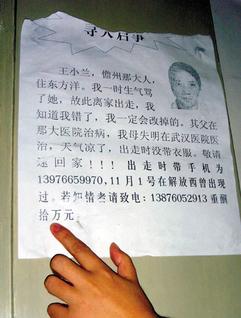 寻人启事
王小兰，儋州那大人，
住东方洋。我一时生气骂
了她，故此离家出走，我
知道我错了，我一定会改掉的。其父在
那大医院治病，我母失明在武汉医院医
治，天气凉了，出走时没带衣服。敬请
速回家！！！出走时带手机为
13976659970,11月1号在解放西曾出现
过。若知情者请致电：13876052913 重酬
拾万元。